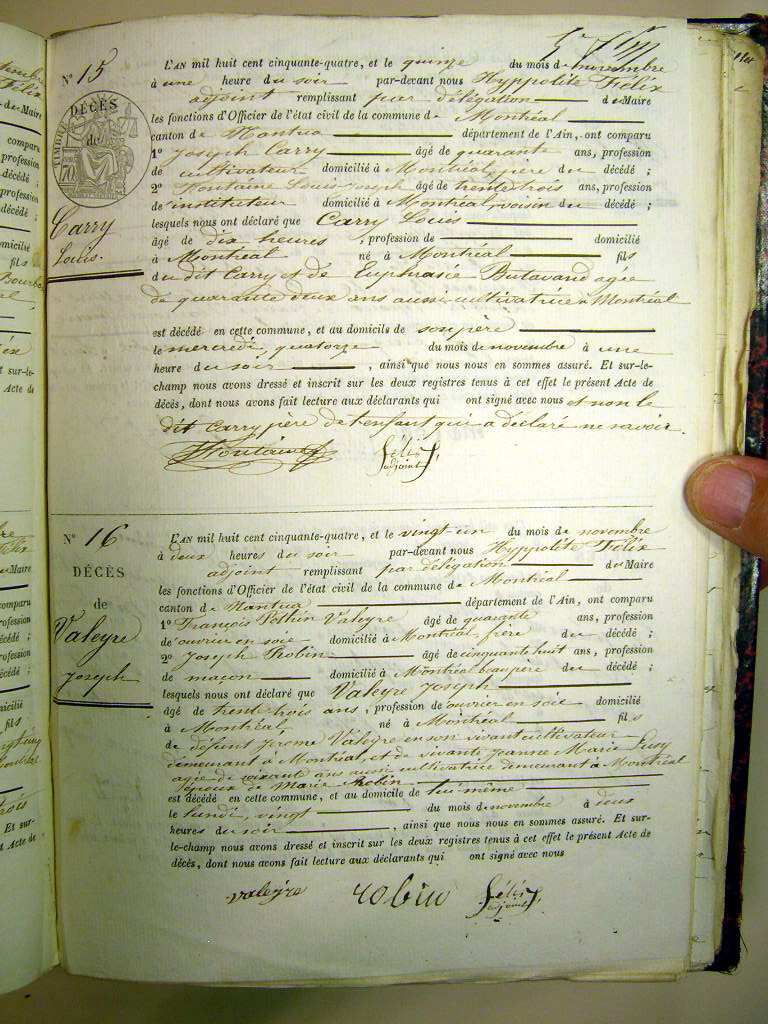 N° 15
DÉCÈS
de
TIMBRE
70
Carry
Louis.
L'AN mil huit cent cinquante-quatre, et le quinze du mois de novembre
à une heure du soir par-devant nous Hyppolite Félix
adjoint remplissant par délégation de Maire
les fonctions d'Officier de l'état civil de la commune de Montréal
canton de Nantua département de l'Ain, ont comparu
1° Joseph Carry âgé de quarante ans, profession
de cultivateur domicilié à Montréal, père du décédé ;
2° Fontaine Louis Joseph âgé de trente trois ans, profession
de instituteur domicilié à Montréal, voisin du décédé ;
lesquels nous ont déclaré que Carry Louis
âgé de dix heures, profession de domicilié
à Montréal né à Montréal fils
du dit Carry et de Euphrasie Butavand agée
de quarante deux ans aussi cultivatrice à Montréal
est décédé en cette commune, et au domicile de son père
le mercredi, quatorze du mois de novembre à une
heure du soir, ainsi que nous nous en sommes assuré. Et sur-le-
champ nous avons dressé et inscrit sur les deux registres tenus à cet effet le présent Acte de
décès, dont nous avons fait lecture aux déclarants qui ont signé avec nous et non le
dit Carry père de l'enfant qui a déclaré ne savoir.
Fontaine Félix
adjoint
N° 16
DÉCÈS
de
Valeyre
Joseph
L'AN mil huit cent cinquante-quatre, et le vingt un du mois de novembre
à deux heures du soir par-devant nous Hyppolite Félix
adjoint remplissant par délégation de Maire
les fonctions d'Officier de l'état civil de la commune de Montréal
canton de Nantua département de l'Ain, ont comparu
1° François Pothin Valeyre âgé de quarante ans, profession
de ouvrier en soie domicilié à Montréal frère du décédé ;
2° Joseph Robin âgé de cinquante huit ans, profession
de maçon domicilié à Montréal beau père du décédé ;
lesquels nous ont déclaré que Valeyre Joseph
âgé de trente trois ans, profession de ouvrier en soie domicilié
à Montréal né à Montréal fils
de défunt Jerome Valeyre en son vivant cultivateur
demeurant à Montréal, et de vivante Jeanne Marie
agée de soixante ans aussi cultivatrice demeurant à Montréal
époux de Marie Robin
est décédé en cette commune, et au domicile de lui-même
le lundi, vingt du mois de novembre à deux
heures du soir, ainsi que nous nous en sommes assuré. Et sur-
le-champ nous avons dressé et inscrit sur les deux registres tenus à cet effet le présent Acte de
décès, dont nous avons fait lecture aux déclarants qui ont signé avec nous
valeyre robin Félix
adjoint